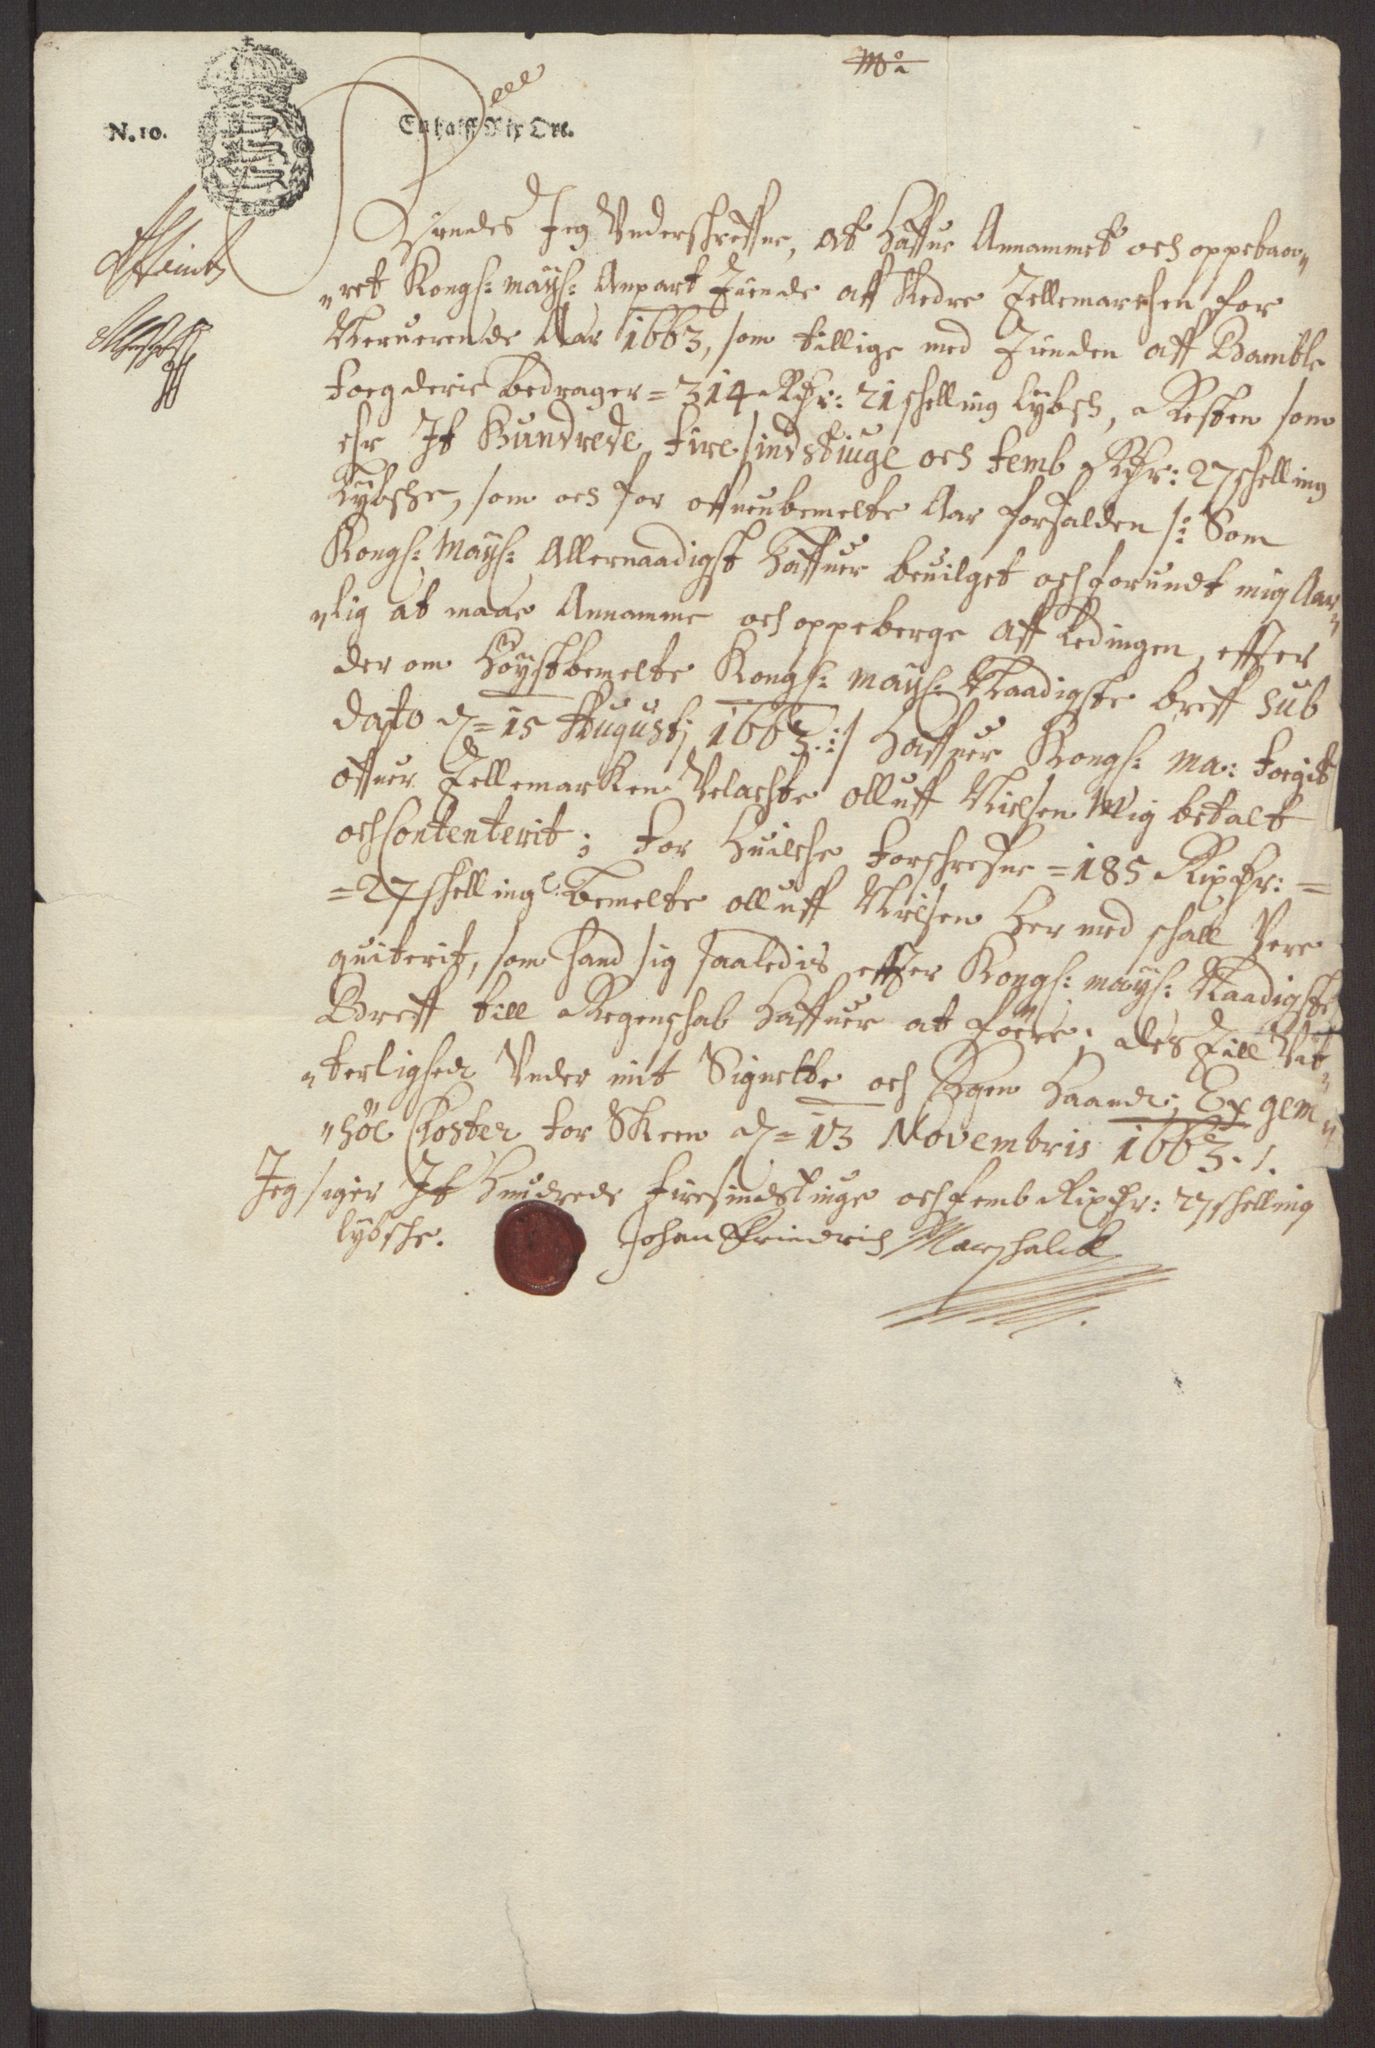 N. 10.
En halff Rix Ort.
Kiendes Jeg Underschrefne, at Haffue Annammet och oppebaar„
„ret Kongs: Mays: Anpart Tiende aff Nedre Tellemarchen for
Neruerende Aar 1663, som tillige med Tienden aff Bamble
fougderie bedrager = 314 Rdr: 21 schelling lybsch, Resten som
ehr Jt Hundrede firesindstiuge och femb Rdr: 27 schelling
Lybsche, som och for offuenbemelte Aar forfalden /: Som
Kongs: Mays: Allernaadigst Haffuer beuilget och forundt mig Aar„
„lig at maae Annamme och oppeberge aff Ledingen, effter
der om Höystbemelte Kongs: Mays: Naadigste breff sub
dato d= 15 Augustj 1663 :/ Haffuer Kongs: Ma: foegit
offuer Tellemarken Velachte Olluff Nielsen Mig betalt
och Contenterit; for Huilche forschrefne = 185 Rixdr: =
= 27 schelling l: bemelte Olluff Nielsen Her med schall Vere
quiterit, som hand sig saaledis effter Kongs: Mays: Naadigste
Breff till Regenschab Haffuer at föere; des Till Vit„
„terlighed Under mit Signette och Egen Haand; Ex gem„
„söe Closter for Skeen d= 13 Novembris 1663 ./.
Jeg siger Jt Hundrede firesindstiuge och femb Rixdr: 27 schelling
lybsche.
Johan Friedrich Marschalck